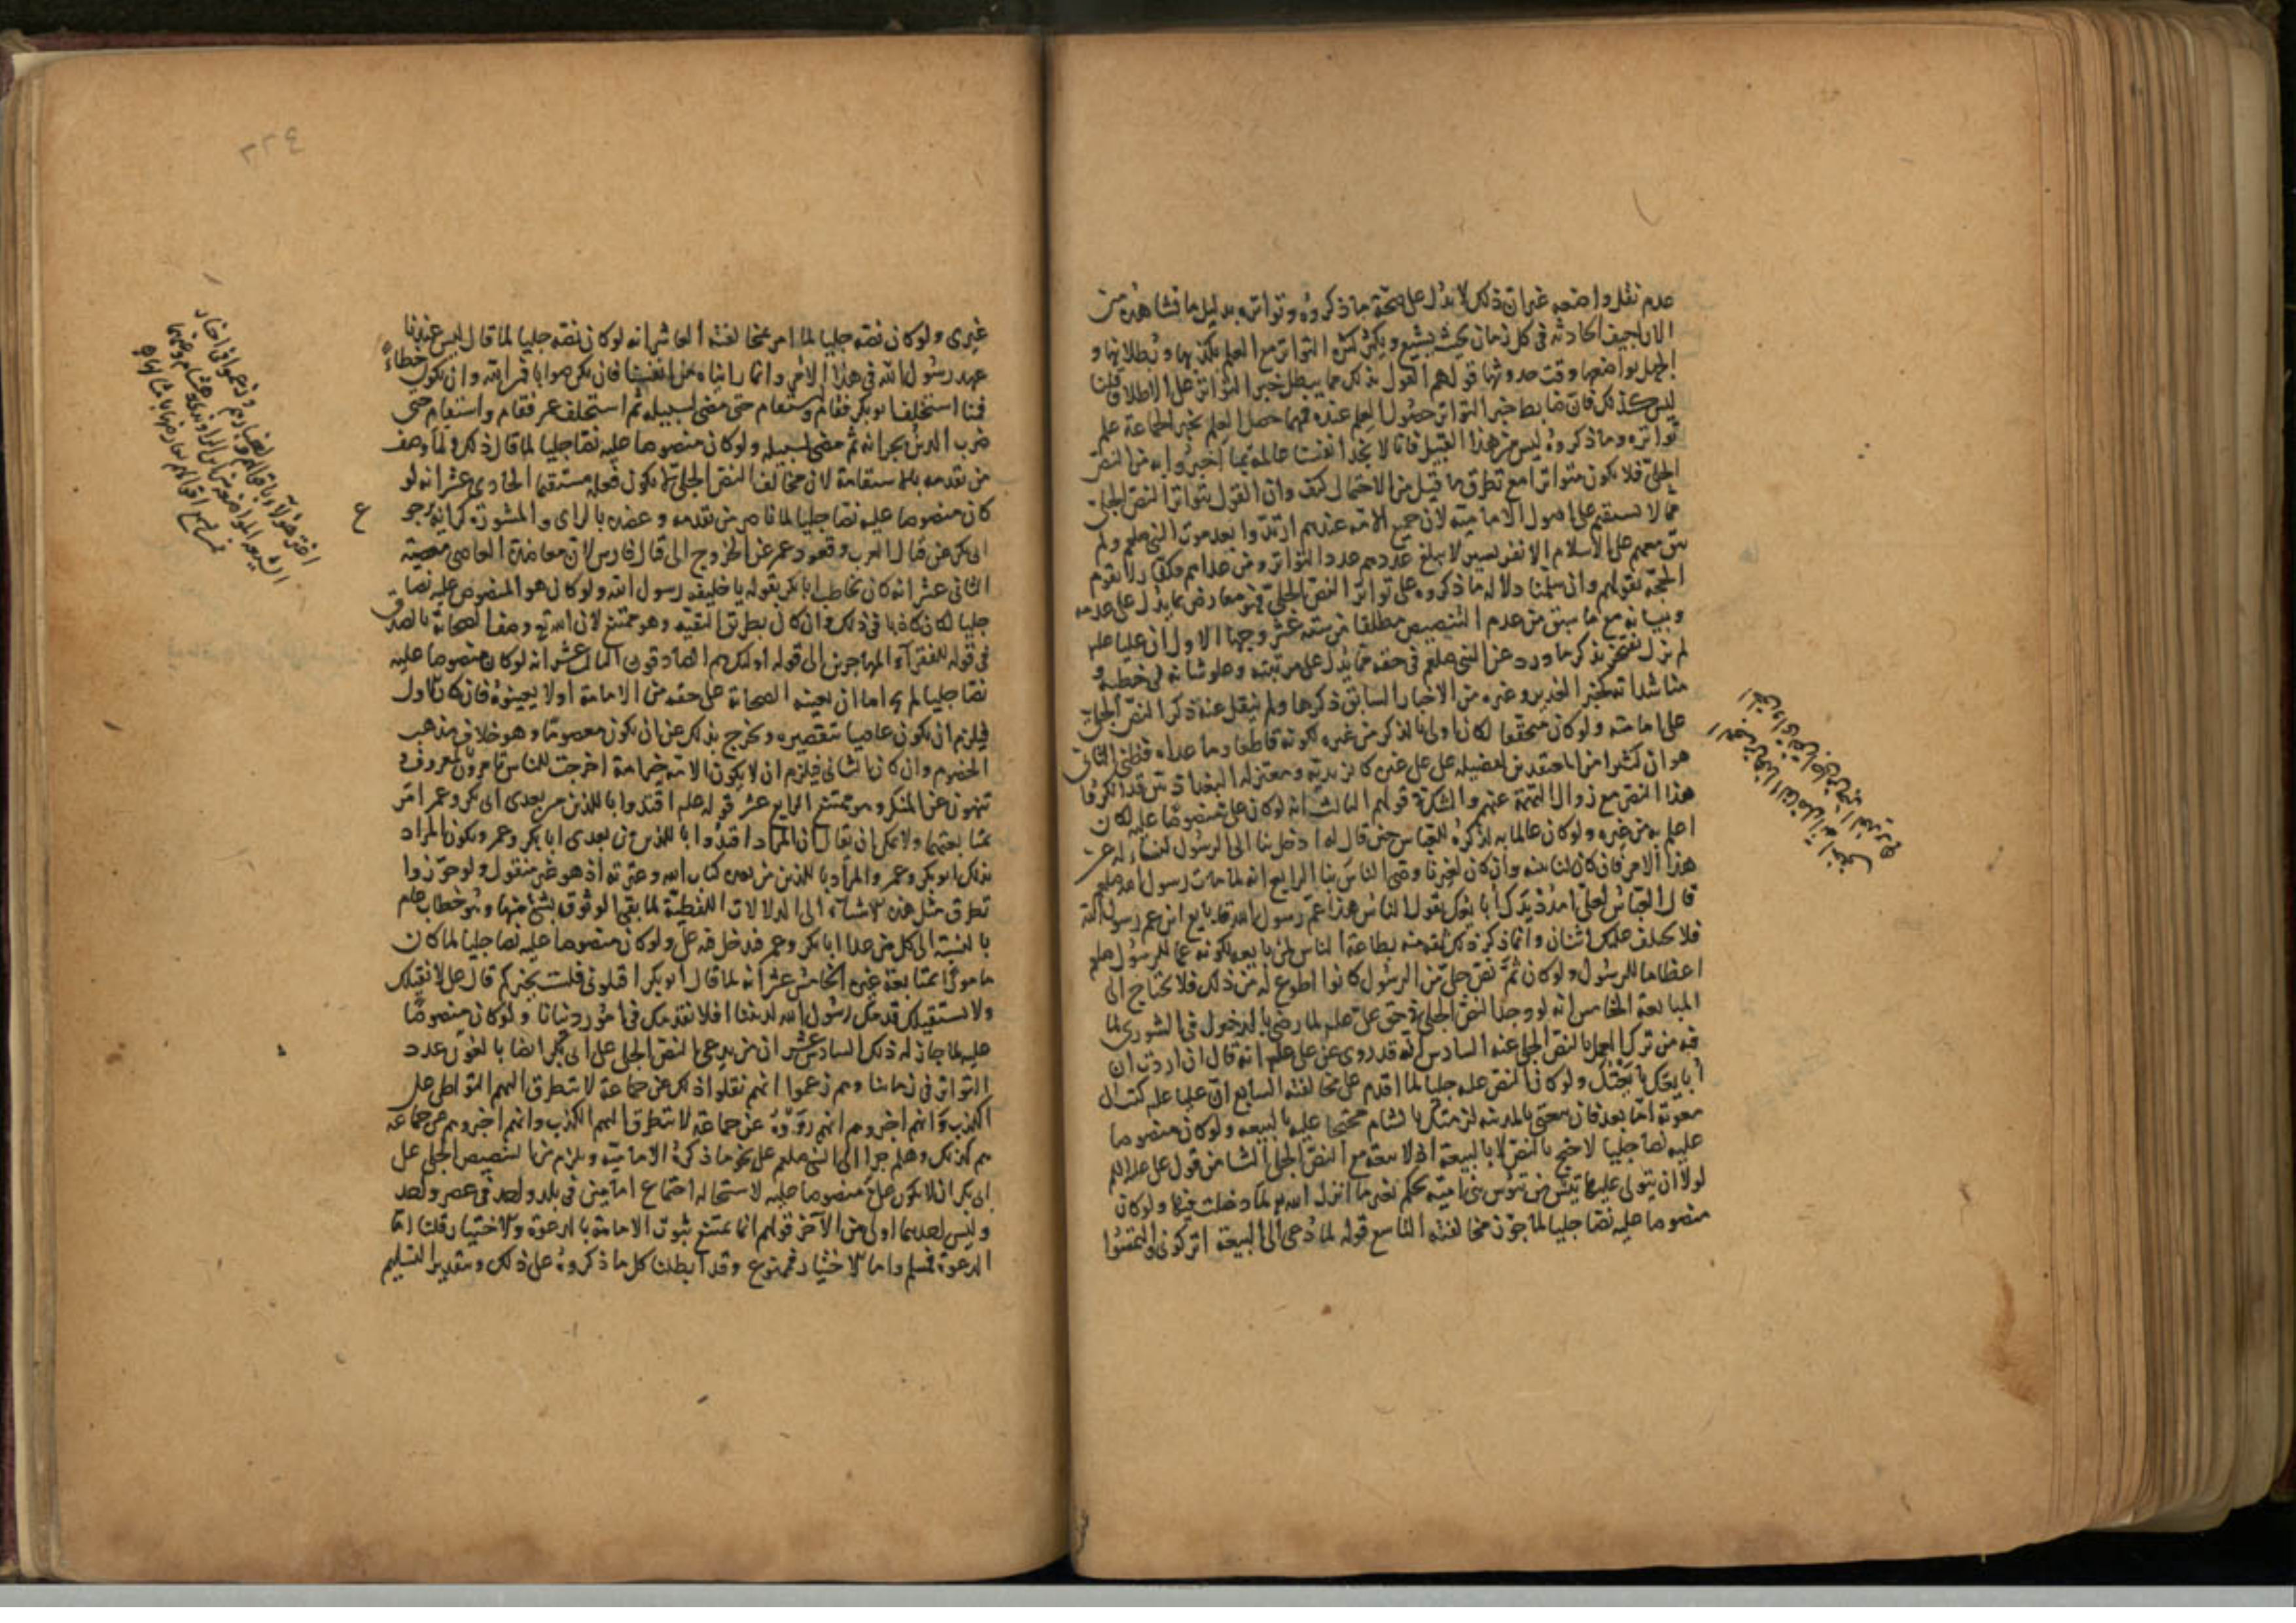 عدم نقل واضعه غير ان ذلك لا يدل على صحة ما ذكروه وتواتره بدليل ما نشاهده من
الاراجيف الحادثة فى كل زمان بحيث يشيع ويكثر كثرة التواتر مع العلم بكذبها وبطلانها و
الجهل بواضعها وقت حدوثها قولهم القول بذلك مما يبطل خبر التواتر على الاطلاق قلنا
ليس كذلك فان ضابط خبر التواتر حصول العلم عنده فمهما حصل العلم بخبر الجماعة علم
تواتره وما ذكروه ليس من هذا القبيل فانا لا نجد انفسنا عالمة بما اخبروا به من النص
الجلى فلا يكون متواترا مع تطرق ما قيل من الاحتمال كيف وان القول بتواتر النص الجلى
مما لا يستقيم على اصول الامامية لان جميع الامة عندهم ارتدوا بعد موت النبى صلعم ولم
يبق معهم على الاسلام الا نفر يسير لا يبلغ عددهم عدد التواتر ومن عداهم فكفار لا تقوم
الحجة بقولهم وان سلمنا دلالة ما ذكروه على تواتر النص الجلى فهو معارض بما يدل على عدمه
وبيانه مع ما سبق من عدم التنصيص مطلقا من ستة عشر وجها الاول ان عليا علم
لم يزل يفتخر بذكر ما ورد عن النبى صلعم فى حقه مما يدل على مرتبته وعلو شانه فى خطبه و
مناشداته كخبر الغدير وغيره من الاخبار السابق ذكرها ولم ينقل عنه ذكر النص الجلى
على امامته ولو كان متحققا لكان اولى بالذكر من غيره لكونه قاطعا وما عداه فظنى الثانى
هو ان كثيرا من المعتقدين لتفضيله على غيره كالزيدية ومعتزلة البغداديين قد انكروا
هذا النص مع زوال التهمة عنهم والشك فى قولهم الثالث انه لو كان على منصوصا عليه لكان
اعلم به من غيره ولو كان عالما به لذكره للعباس حين قال له ادخل بنا الى الرسول لنساله عن
هذا الامر فان كان لنا بينه وان كان لغيرنا وصى الناس بنا الرابع انه لما مات رسول الله صلعم
قال العباس لعلى امدد يدك ابايعك يقول الناس هذا عم رسول الله قد بايع ابن عم رسول الله
فلا يختلف عليك اثنان وانما ذكر ذلك ثقة منه بطاعة الناس لمن بايعه لكونه عما للرسول صلعم
اعظاما للرسول ولو كان ثم نص جلى من الرسول كانوا اطوع له من ذلك فلا يحتاج الى
المبايعة الخامس انه لو وجد النص الجلى فى حق على علم لما رضى بالدخول فى الشورى لما
فيه من ترك العمل بالنص الجلى عنه السادس انه قد روى عن على علم انه قال ان اردت ان
ابايعك بايعتك ولو كان النص عليه جليا لما اقدم على مخالفته السابع ان عليا علم كتب الى
معوية اما بعد فان بيعتى بالمدينة لزمتك بالشام محتجا عليه بالبيعه ولو كان منصوصا
عليه نصا جليا لاحتج بالنص لا بالبيعة اذ لا بيعة مع النص الجلى الثامن قول على علم
لولا ان يتولى عليها تيس من تيوس بنى امية يحكم بغير ما انزل الله لما دخلت فيها ولو كان
منصوصا عليه نصا جليا لما جوز مخالفته التاسع قوله لما دعى الى البيعة اتركونى والتمسوا
غيرى ولو كان نصه جليا لما امر بمخالفته العاشر انه لو كان نصه جليا لما قال ليس عندنا
عهد رسول الله فى هذا الامر وانما راينا من انفسنا فان يكن صوابا فمن الله وان يكون خطاء
فمنا استخلفنا ابو بكر فقام واستقام حتى مضى لسبيله ثم استخلف عمر فقام واستقام حتى
ضرب الدين بجرانه ثم مضى لسبيله ولو كان منصوصا عليه نصا جليا لما قال ذلك ولما وصف
من تقدمه بالاستقامة لان مخالف النص الجلى لا يكون فعله مستقيما الحادى عشر انه لو
كان منصوصا عليه نصا جليا لما ناصر من تقدمه وعضده بالراى والمشورة كرايه برجوع
ابى بكر عن قتال العرب وقعود عمر عن الخروج الى قتال فارس لان معاضدة العاصى معصية
الثانى عشر انه كان يخاطب ابا بكر بقوله يا خليفة رسول الله ولو كان هو المنصوص عليه نصا
جليا لكان كاذبا فى ذلك وان كان بطريق التقيه وهو ممتنع لان الله تع وصف الصحابة بالصدق
فى قوله للفقرآء المهاجرين الى قوله اولئك هم الصادقون الثالث عشر انه لو كان منصوصا عليه
نصا جليا لم يخ اما ان يعينه الصحابة على حقه من الامامة اولا يعينوه فان كان الاول
فيلزم ان يكون عاصيا بتقصيره ويخرج بذلك عن ان يكون معصوما وهو خلاف مذهب
الخصوم وان كان الثانى فيلزم ان لا يكون الامة خير امة اخرجت للناس تامرون بالمعروف و
تنهون عن المنكر وهو ممتنع الرابع عشر قوله علم اقتدوا باللذين من بعدى ابى بكر وعمر امر
بمتابعتهما ولا يمكن ان يقال ان المراد اقتدوا باللذين من بعدى ابا بكر وعمر ويكون المراد
بذلك ابو بكر وعمر والمراد باللذين من بعده كتاب الله وعترته اذ هو غير منقول ولو جوزوا
تطرق مثل هذه الاشيآء الى الدلالات اللفظية لما بقى الوثوق بشئ منها وهو خطاب عام
بالنسبة الى كل من عدا ابا بكر وعمر فدخل فيه على ولو كان منصوصا عليه نصا جليا لما كان
مامورا بمتابعة غيره الخامس عشر انه لما قال ابو بكر اقيلونى فلست بخيركم قال على لا نقيلك
ولا نستقيلك قدمك رسول الله لديننا افلا نقدمك فى امور دنيانا ولو كان منصوصا
عليه لما جاز له ذلك السادس عشر ان من يدعى النص الجلى على ابى بكر ايضا بالغون عدد
التواتر فى زماننا وهم زعموا انهم نقلوا ذلك عن جماعة لا يتطرق اليهم التواطى على
الكذب وانهم اخبروهم انهم رووه عن جماعة لا يتطرق اليهم الكذب وانهم اخبروهم عن جماعه
هم كذلك وهلم جرا الى النبى صلعم على نحو ما ذكره الامامية ويلزم من التنصيص الجلى على
ابى بكر ان لا يكون على منصوصا عليه لاستحالة اجتماع امامين فى بلد واحد فى عصر واحد
وليس احدهما اولى من الآخر قولهم انما يمتنع ثبوت الامامة بالدعوة والاختيار قلنا اما
الدعوة فمسلم واما الاختيار فممنوع وقد ابطلنا كل ما ذكروه على ذلك وبتقدير التسليم